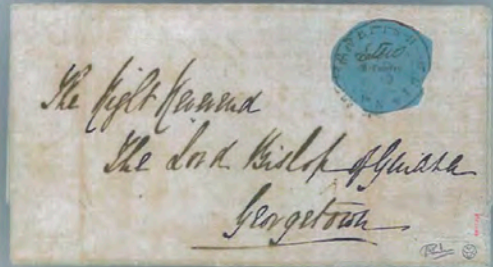 The Right Reverend
The Lord Bishop of Guiana
Georgetown